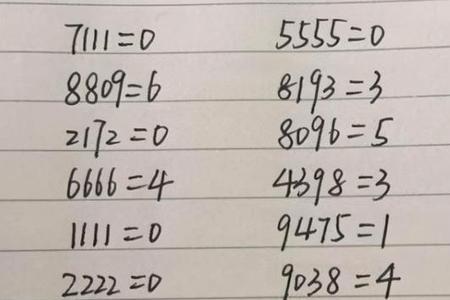 7111=0 5555=0
8809=6 8193=3
2172=0 8096=5
6666=4 4398=3
1111=0 9475=1
2222=0 9038=4